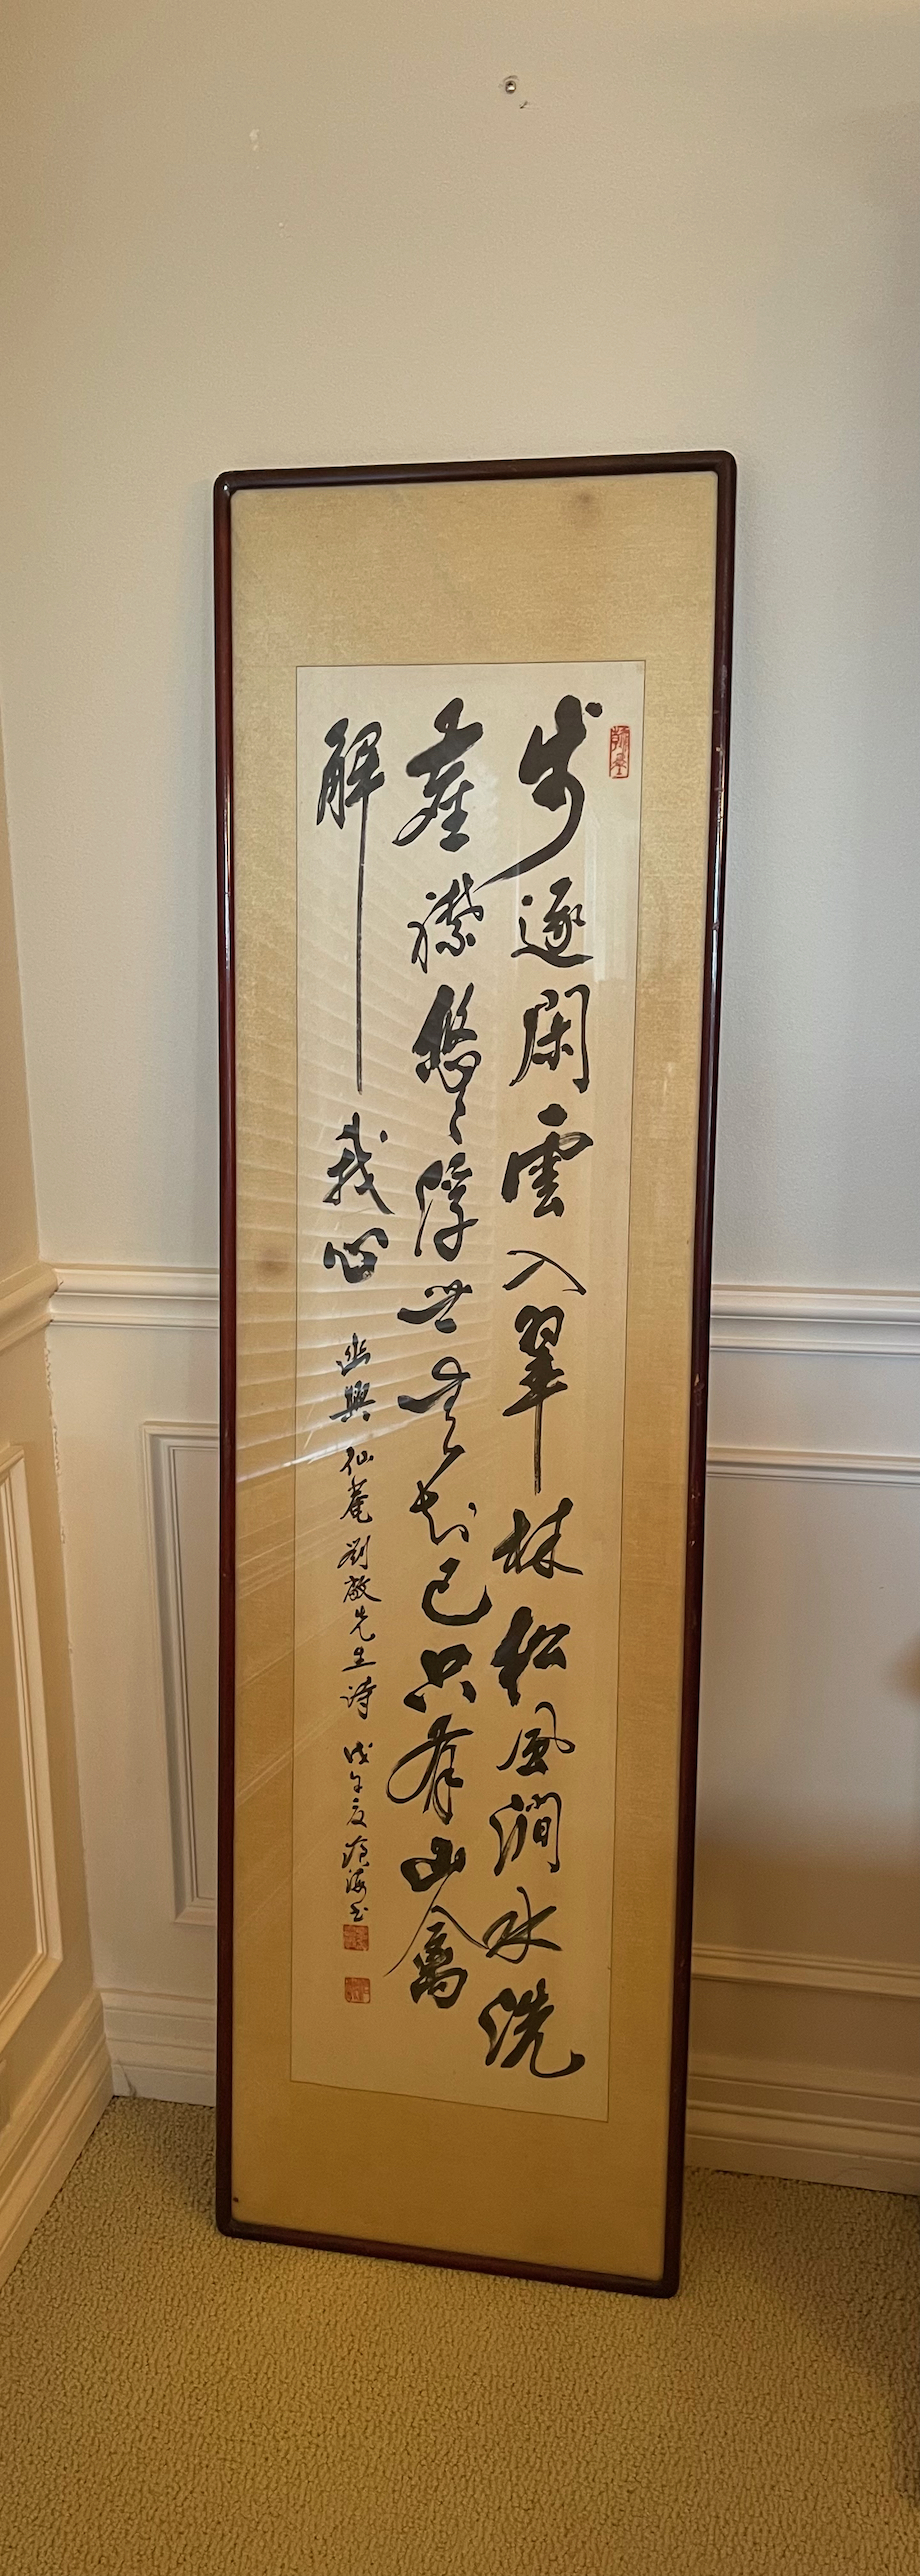 步逐閑雲入翠林松風澗水洗
塵襟悠々浮世無知己只有山禽
解我心 幽興 仙菴劉敞先生詩 戊午夏 海書